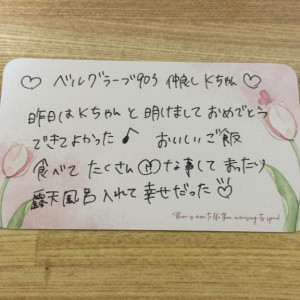 ♡ ベルグラーブ90分 仲良しKちゃん ♡
昨日はKちゃんと明けましておめでとう
できてよかった♪ おいしいご飯
食べてたくさんⒽな事してまったり
露天風呂入れて幸せだった♡
There is more to life than increasing its speed